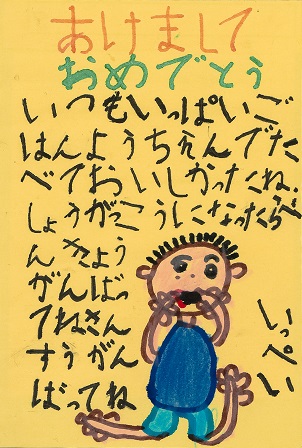 あけまして
おめでとう
いつもいっぱいご
はんようちえんでた
べておいしかったね、
しょうがっこうになったらべ
んきょう
がんばっ
てねさん
すうがん
ばってね
いっぺい